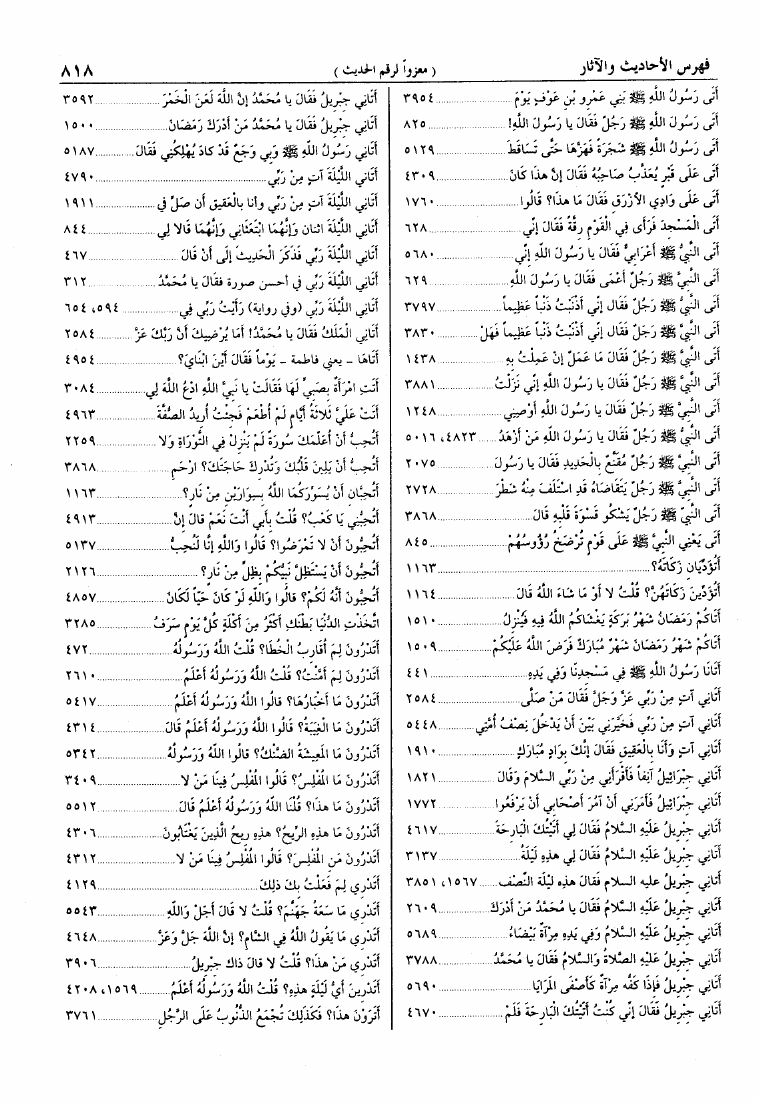 فهرس الأحاديث والآثار ( معزواً لرقم الحديث ) ٨١٨
أَتَى رَسُولُ اللَّهِ ﷺ بَنِي عَمْرِو بْنِ عَوْفٍ يَوْمَ ٣٩٥٤
أَتَى رَسُولَ اللَّهِ ﷺ رَجُلٌ فَقَالَ يا رَسُولَ اللَّهِ! ٨٢٥
أَتَى رَسُولُ اللَّهِ ﷺ شَجَرَةً فَهَزَّهَا حَتَّى تَسَاقَطَ ٥١٢٩
أَتَى عَلَى قَبْرٍ يُعَذَّبُ صَاحِبُهُ فَقَالَ إِنَّ هَذَا كَانَ ٤٣٠٩
أَتَى عَلَى وَادِي الأَزْرَقِ فَقَالَ مَا هَذَا؟ قَالُوا ١٧٦٠
أَتَى الْمَسْجِدَ فَرَأَى فِي الْقَوْمِ رِقَّةً فَقَالَ إِنِّي ٦٢٨
أَتَى النَّبِيَّ ﷺ أَعْرَابِيٌّ فَقَالَ يا رَسُولَ اللَّهِ إِنِّي ٥٦٨٠
أَتَى النَّبِيَّ ﷺ رَجُلٌ أَعْمَى فَقَالَ يا رَسُولَ اللَّهِ ٦٢٩
أَتَى النَّبِيَّ ﷺ رَجُلٌ فَقَال إِنِّي أَذْنَبْتُ ذَنْباً عَظِيماً ٣٧٩٧
أَتَى النَّبِيَّ ﷺ رَجُلٌ فَقَال إِنِّي أَذْنَبْتُ ذَنْباً عَظِيماً فَهَلْ ٣٨٣٠
أَتَى النَّبِيَّ ﷺ رَجُلٌ فَقَالَ مَا عَمَلٌ إِنْ عَمِلْتُ بِهِ ١٤٣٨
أَتَى النَّبِيَّ ﷺ رَجُلٌ فَقَالَ يا رَسُولَ اللَّهِ إِنِّي نَزَلْتُ ٣٨٨١
أَتَى النَّبِيَّ ﷺ رَجُلٌ فَقَالَ يا رَسُولَ اللَّهِ أَوْصِنِي ١٢٤٨
أَتَى النَّبِيَّ ﷺ رَجُلٌ فَقَالَ يا رَسُولَ اللَّهِ مَنْ أَزْهَدُ ٤٨٢٣، ٥٠١٦
أَتَى النَّبِيَّ ﷺ رَجُلٌ مُقَنَّعٌ بِالْحَدِيدِ فَقَالَ يا رَسُولَ ٢٠٧٥
أَتَى النَّبِيَّ ﷺ رَجُلٌ يَتَقَاضَاهُ قَدِ اسْتَلَفَ مِنْهُ شَطْرَ ٢٧٢٨
أَتَى النَّبِيَّ ﷺ رَجُلٌ يَشْكُو قَسْوَةَ قَلْبِهِ قَالَ ٣٨٦٨
أَتَى يَعْنِي النَّبِيَّ ﷺ عَلَى قَوْمٍ تُرْضَخُ رُؤُوسُهُمْ ٨٤٥
أَتُؤَدِّيَانِ زَكَاتَهُ؟ ١١٦٣
أَتُؤَدِّينَ زَكَاتَهُنَّ؟ قُلْتُ لا أَوْ مَا شَاءَ اللَّهُ قَالَ ١١٦٤
أَتَاكُمْ رَمَضَانُ شَهْرُ بَرَكَةٍ يَغْشَاكُمُ اللَّهُ فِيهِ فَيُنْزِلُ ١٥١٠
أَتَاكُمْ شَهْرُ رَمَضَانَ شَهْرٌ مُبَارَكٌ فَرَضَ اللَّهُ عَلَيْكُمْ ١٥٠٩
أَتَانَا رَسُولُ اللَّهِ ﷺ فِي مَسْجِدِنَا وَفِي يَدِهِ ٤٤١
أَتَانِي آتٍ مِنْ رَبِّي عَزَّ وَجَلَّ فَقَالَ مَنْ صَلَّى ٢٥٨٤
أَتَانِي آتٍ مِنْ رَبِّي فَخَيَّرَنِي بَيْنَ أَنْ يَدْخُلَ نِصْفُ أُمَّتِي ٥٤٤٨
أَتَانِي آتٍ وَأَنَا بِالْعَقِيقِ فَقَالَ إِنَّكَ بِوَادٍ مُبَارَكٍ ١٩١٠
أَتَانِي جِبْرَائِيلُ آنِفاً فَأَقْرَأَنِي مِنْ رَبِّي السَّلامَ وَقَالَ ١٨٢١
أَتَانِي جِبْرَائِيلُ فَأَمَرَنِي أَنْ آمُرَ أَصْحَابِي أَنْ يَرْفَعُوا ١٧٧٢
أَتَانِي جِبْرِيلُ عَلَيْهِ السَّلامُ فَقَالَ لِي أَتَيْتُكَ الْبَارِحَةَ ٤٦١٧
أَتَانِي جِبْرِيلُ عَلَيْهِ السَّلامُ فَقَالَ لِي هذِهِ لَيْلَةُ ٣١٣٧
أَتَانِي جِبْرِيلُ عليه السلام فقال هذه ليلة النِّصْف ١٥٦٧، ٣٨٥١
أَتَانِي جِبْرِيلُ عَلَيْهِ السَّلامُ فَقَالَ يا مُحَمَّدُ مَنْ أَدْرَكَ ٢٦٠٩
أَتَانِي جِبْرِيلُ عَلَيْهِ السَّلامُ وَفِي يَدِهِ مِرْآةٌ بَيْضَاءُ ٥٦٨٩
أَتَانِي جِبْرِيلُ عَلَيْهِ الصَّلاةُ وَالسَّلامُ فَقَالَ يا مُحَمَّدُ ٣٧٨٨
أَتَانِي جِبْرِيلُ فَإِذَا كَفُّهُ مِرْآةٌ كَأَصْفَى الْمَرَايَا ٥٦٩٠
أَتَانِي جِبْرِيلُ فَقَالَ إِنِّي كُنْتُ أَتَيْتُكَ الْبَارِحَةَ فَلَمْ ٤٦٧٠
أَتَانِي جِبْرِيلُ فَقَالَ يا مُحَمَّدُ إِنَّ اللَّهَ لَعَنَ الْخَمْرَ ٣٥٩٢
أَتَانِي جِبْرِيلُ فَقَالَ يا مُحَمَّدُ مَنْ أَدْرَكَ رَمَضَانَ ١٥٠٠
أَتَانِي رَسُولُ اللَّهِ ﷺ وَبِي وَجَعٌ قَدْ كادَ يُهْلِكُنِي فَقَالَ ٥١٨٧
أَتَانِي اللَّيْلَةَ آتٍ مِنْ رَبِّي ٤٧٩٠
أَتَانِي اللَّيْلَةَ آتٍ مِنْ رَبِّي وأنا بِالْعَقِيق أن صَلِّ في ١٩١١
أَتَانِي اللَّيْلَةَ اثنان وَإِنَّهُمَا ابْتَعَثَانِي وَإِنَّهُمَا قَالا لِي ٨٤٤
أَتَانِي اللَّيْلَةَ رَبِّي فَذَكَرَ الْحَدِيثَ إِلَى أَنْ قَالَ ٤٦٧
أَتَانِي اللَّيْلَةَ رَبِّي في أحسن صورة فقالَ يا مُحَمَّدُ ٣١٢
أَتَانِي اللَّيْلَةَ رَبِّي (وفي رواية) رَأَيْتُ رَبِّي فِي ٥٩٤، ٦٥٤
أَتَانِي الْمَلَكُ فَقَالَ يا مُحَمَّدُ! أَمَا يُرْضِيكَ أَنَّ رَبَّكَ عَزَّ ٢٥٨٤
أَتَاهَا - يعني فاطمة - يَوْماً فَقَالَ أَيْنَ ابْنَايَ؟ ٤٩٥٤
أَتَتِ امْرَأَةٌ بِصَبِيٍّ لَهَا فَقَالَتْ يا نَبِيَّ اللَّهِ ادْعُ اللَّهَ لِي ٣٠٨٤
أَتَتْ عَلَيَّ ثَلاثَةُ أَيَّامٍ لَمْ أَطْعَمْ فَجِئْتُ أُرِيدُ الصُّفَّةَ ٤٩٦٣
أَتُحِبُّ أَنْ أُعَلِّمَكَ سُورَةً لَمْ يَنْزِلْ فِي التَّوْرَاةِ وَلا ٢٢٥٩
أَتُحِبُّ أَنْ يَلِينَ قَلْبُكَ وَتُدْرِكَ حَاجَتَكَ؟ ارْحَمِ ٣٨٦٨
أَتُحِبَّانِ أَنْ يُسَوِّرَكُمَا اللَّهُ بِسِوَارَيْنِ مِنْ نَارٍ؟ ١١٦٣
أَتُحِبُّنِي يا كَعْبُ؟ قُلْتُ بِأَبِي أَنْتَ نَعَمْ قالَ إِنَّ ٤٩١٣
أَتُحِبُّونَ أَنْ لا تَمْرَضُوا؟ قالُوا وَاللَّهِ إِنَّا لَنُحِبُّ ٥١٣٧
أَتُحِبُّونَ أَنْ يَسْتَظِلَّ نَبِيُّكُمْ بِظِلٍّ مِنْ نَارٍ؟ ٢١٢٦
أَتُحِبُّونَ أَنَّهُ لَكُمْ؟ قالُوا وَاللَّهِ لَوْ كَانَ حَيّاً لَكَانَ ٤٨٥٧
اتَّخَذْتِ الدُّنْيَا بَطْنَكِ أَكْثَرُ مِنْ أَكْلَةٍ كُلَّ يَوْمٍ سَرَفٌ ٣٢٨٥
أَتَدْرُونَ لِمَ أُقَارِبُ الْخُطَا؟ قُلْتُ اللَّهُ وَرَسُولُهُ ٤٧٢
أَتَدْرُونَ لِمَ أَمَّنْتُ؟ قُلْتُ اللَّهُ وَرَسُولُهُ أَعْلَمُ ٢٦١٠
أَتَدْرُونَ مَا أَخْبَارُهَا؟ قالُوا اللَّهُ وَرَسُولُهُ أَعْلَمُ ٥٤١٧
أَتَدْرُونَ مَا الْغِيبَةُ؟ قالُوا اللَّهُ وَرَسُولُهُ أَعْلَمُ قَالَ ٤٣١٤
أَتَدْرُونَ مَا الْمَعِيشَةُ الضَّنْكُ؟ قالُوا اللَّهُ وَرَسُولُهُ ٥٣٤٢
أَتَدْرُونَ مَا الْمُفْلِسُ؟ قَالُوا الْمُفْلِسُ فِينَا مَنْ لا ٣٤٠٩
أَتَدْرُونَ مَا هَذَا؟ قُلْنَا اللَّهُ وَرَسُولُهُ أَعْلَمُ قَالَ ٥٥١٢
أَتَدْرُونَ مَا هَذِهِ الرِّيحُ؟ هذِهِ رِيحُ الَّذِينَ يَغْتَابُونَ ٤٣٠٦
أَتَدْرُونَ مَنِ الْمُفْلِسُ؟ قالُوا الْمُفْلِسُ فِينَا مَنْ لا ٤٣١٢
أَتَدْرِي لِمَ فَعَلْتُ بِكَ ذلِكَ ٤١٢٩
أَتَدْرِي مَا سَعَةُ جَهَنَّمَ؟ قُلْتُ لا قَالَ أَجَلْ وَاللَّهِ ٥٥٤٣
أَتَدْرِي مَا يَقُولُ اللَّهُ فِي الشَّامِ؟ إِنَّ اللَّهَ جَلَّ وَعَزَّ ٤٦٤٨
أَتَدْرِي مَنْ هَذَا؟ قُلْتُ لا قالَ ذاكَ جِبْرِيلُ ٣٩٠٦
أَتَدْرِينَ أَيُّ لَيْلَةٍ هذِهِ؟ قُلْتُ اللَّهُ وَرَسُولُهُ أَعْلَمُ ١٥٦٩، ٤٢٠٨
أَتَرَوْنَ هَذَا؟ فَكَذَلِكَ تُجْمَعُ الذُّنُوبُ عَلَى الرَّجُلِ ٣٧٦١